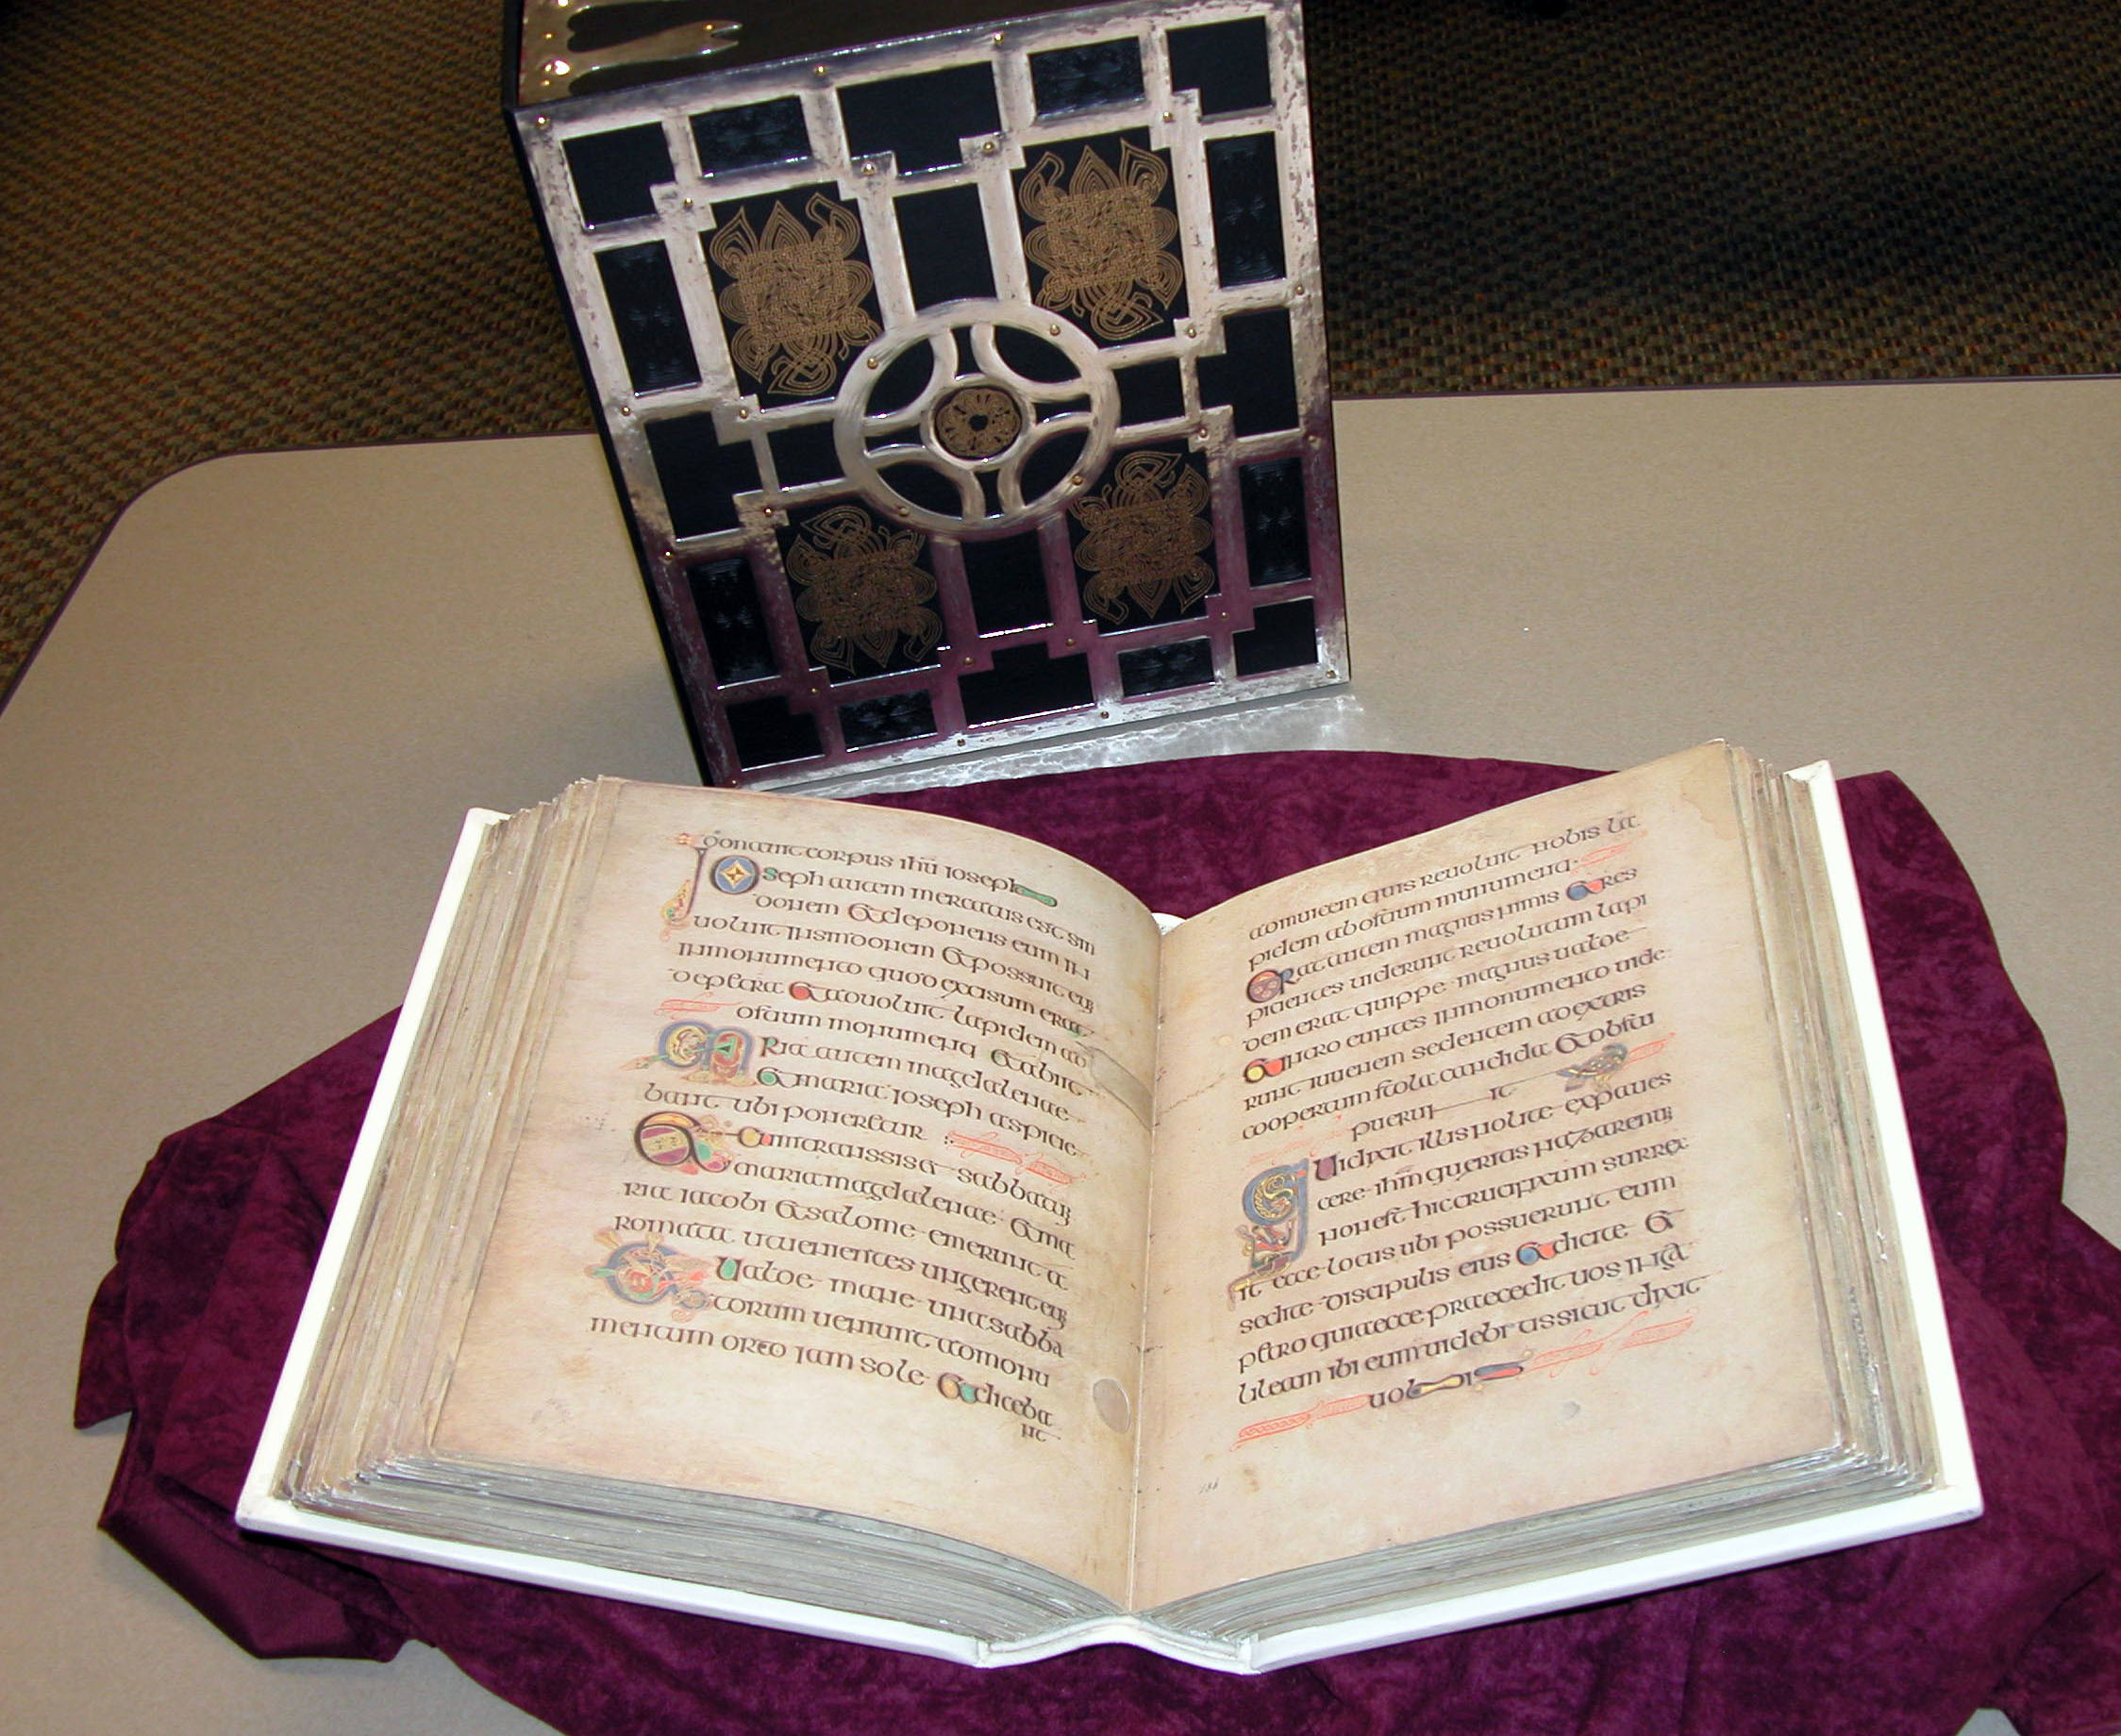 donauit corpus ihū ioseph
Ioseph autem mercatus est sin
donem et deponens eum in
uoluit insindonem et possuit eū
inmonumento quod excisum erat
depetra et aduoluit lapidem ad
ostium monumenti et abiit
Maria autem magdalenae
et maria ioseph aspicie
bant ubi poneretur
Et cum transisset sabbatū
maria magdalenae et ma
ria iacobi et salome emerunt a
romata ut uenientes ungerent eū
Et ualde mane una sabba
torum ueniunt admonu
mentum orto iam sole et diceba
nt
adinuicem quis reuoluit nobis la
pidem abostium munumenti
Erat autem magnus nimis et res
picientes uiderunt reuolutum lapi
dem erat quippe magnus ualde
et intro euntes inmonumento uide
runt iuuenem sedentem adextris
coopertum stola candida et obsti
puerunt
Qui dixit illis nolite expaues
cere ihm queritis nazarenū
crucifixum surrex
it ecce locus ubi possuerunt eum
sed ite discipulis eius et dicite et
petro quia ecce praecedit uos ingal
lileam ibi eum uidebitis sicut dixit
uobis
186